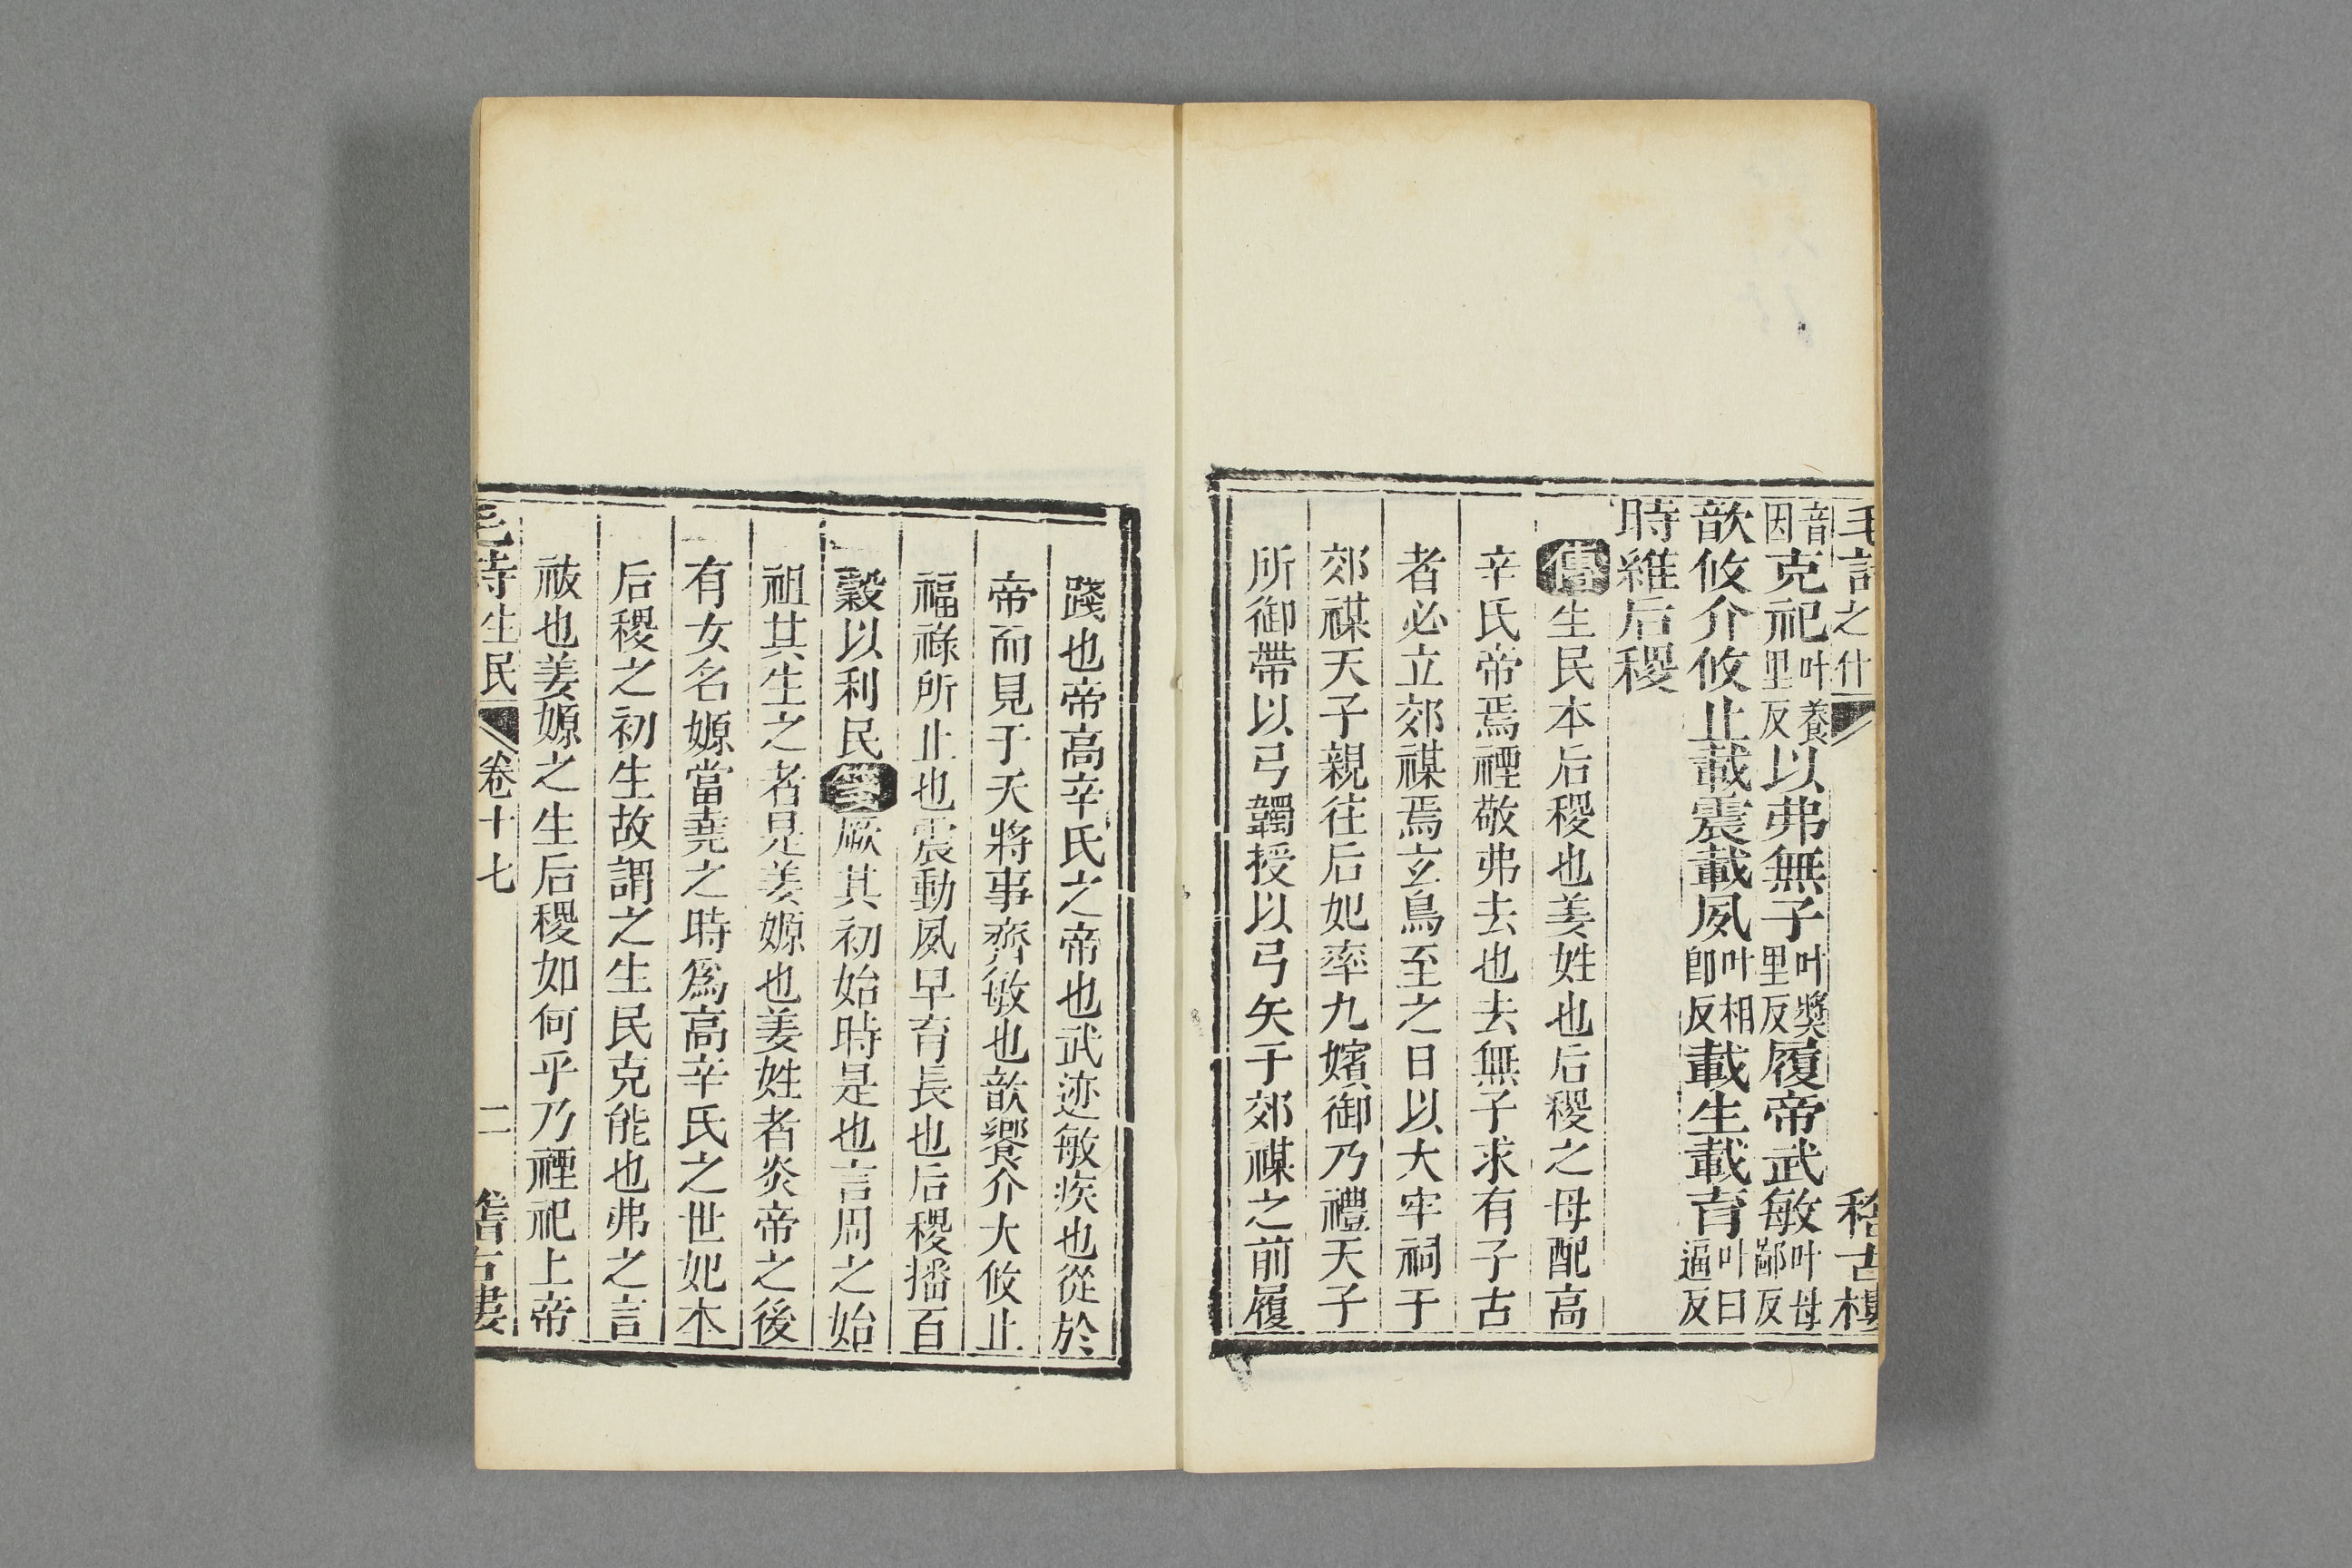 毛詩之什 稽古樓
音因克祀叶養里反以弗無子叶奬里反履帝武敏叶母鄙反
歆攸介攸止載震載夙叶相卽反載生載育叶曰逼反
時維后稷
傳生民本后稷也姜姓也后稷之母配高
辛氏帝焉禋敬弗去也去無子求有子古
者必立郊禖焉玄鳥至之日以大牢祠于
郊禖天子親往后妃率九嬪御乃禮天子
所御帶以弓韣授以弓矢于郊禖之前履
踐也帝高辛氏之帝也武迹敏疾也從於
帝而見于天將事齊敏也歆饗介大攸止
福祿所止也震動夙早育長也后稷播百
穀以利民箋厥其初始時是也言周之始
祖其生之者是姜嫄也姜姓者炎帝之後
有女名嫄當堯之時爲高辛氏之世妃本
后稷之初生故謂之生民克能也弗之言
祓也姜嫄之生后稷如何乎乃禋祀上帝
毛詩生民 卷十七 二 稽古樓